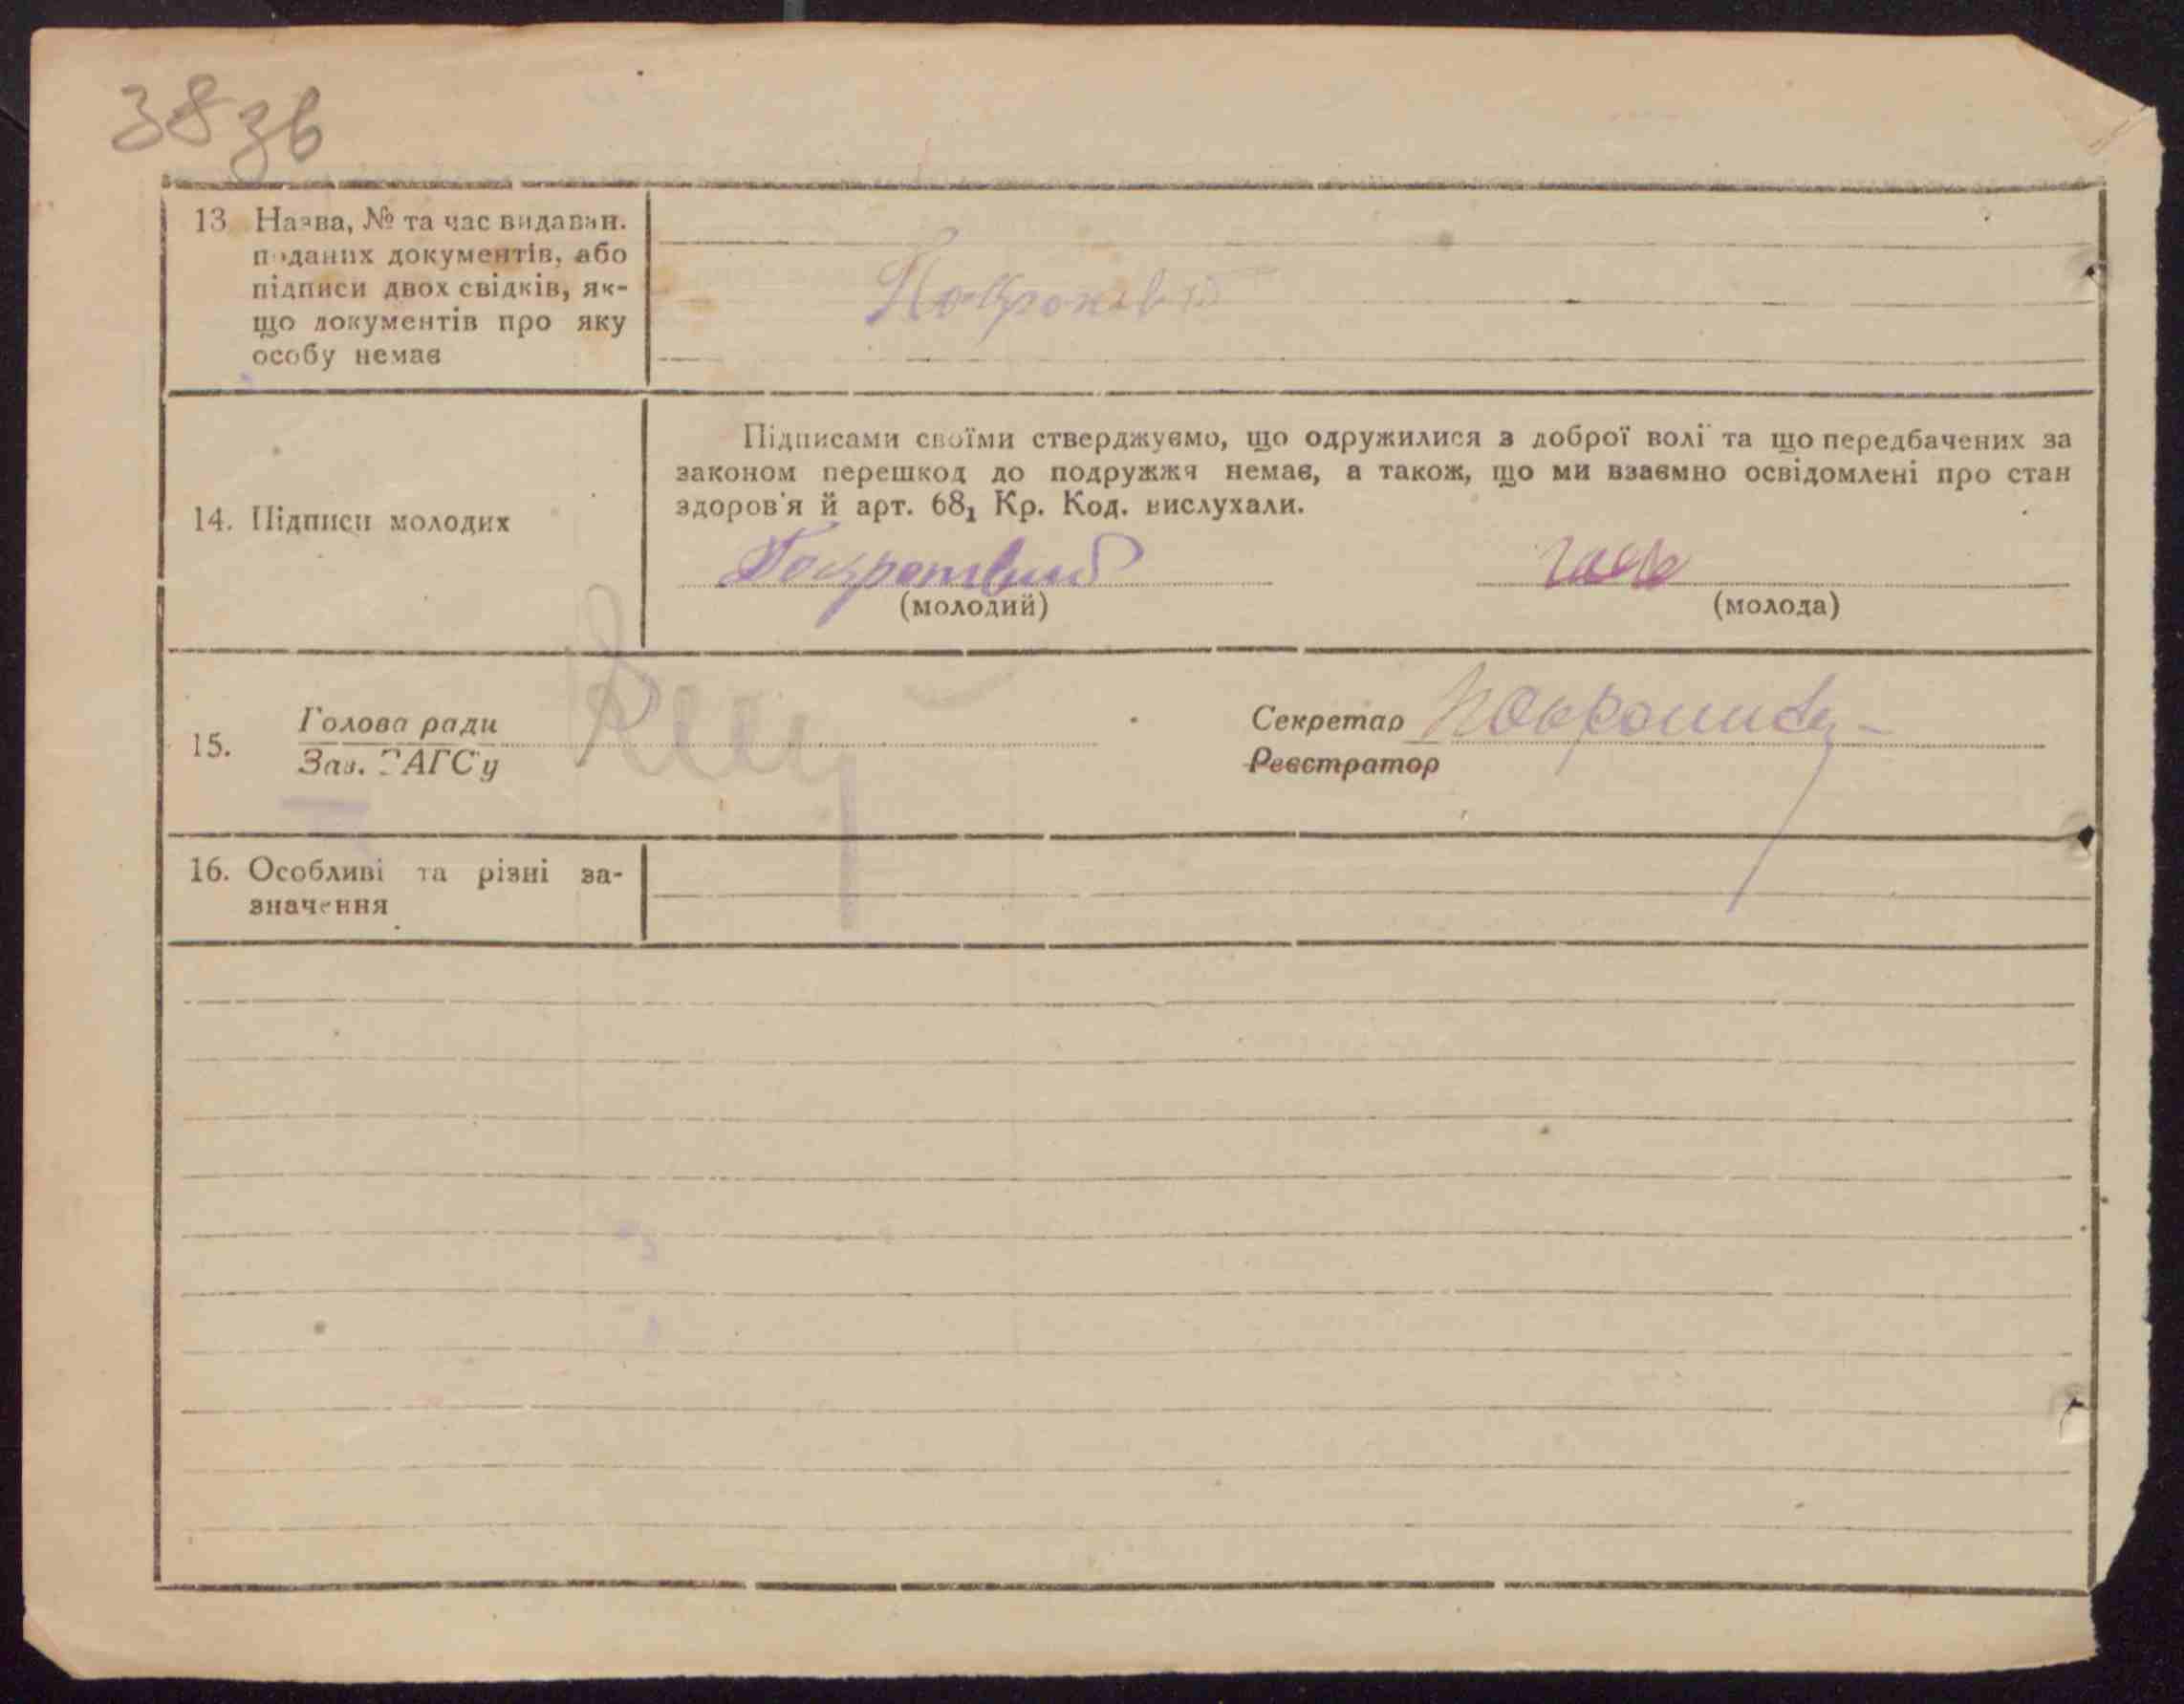 38 зв
13 Назва, № та час видаван.
поданих документів, або
підписи двох свідків, як-
що документів про яку
особу немає
14. Підписи молодих
Підписами своїми стверджуємо, що одружилися з доброї волі та що передбачених за
законом перешкод до подружжя немає, а також, що ми взаємно освідомлені про стан
здоров'я й арт. 68₁ Кр. Код. вислухали.
(молодий)
(молода)
15.
Голова ради
Зав. ЗАГСу
Секретар
Реєстратор
16. Особливі та різні за-
значення